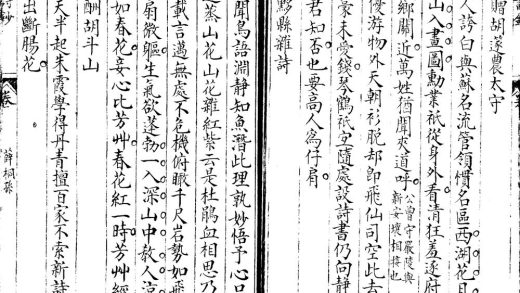 贈胡遂農太守
人誇白與蘇名流管領慣名區西湖花月
山入畫圖勳業祗從身外看清狂羞逐府
鄉關近萬姓猶聞夾道呼公曾守嚴陵與新安壤相接也
優游物外天朝衫脫却卽飛仙司空此去
豪未受錢琴鶴祇宜隨處設詩書仍向靜
君知否也要高人為仔肩
黟縣雜詩
聞鳥語淵静知魚潛此理孰妙悟予心口
蒸山花山花雜紅紫云是杜鵑血相思乃
載言無處不危機俯瞰千尺岩勢如飛
扇微軀生氣欲蓬勃一入深山中教人涼
如春花妾心比芳艸春花紅一時芳艸經
酬胡斗山
天半起朱霞學得丹青擅百家不索新詩
出斷腸花
卷
薛桐孫